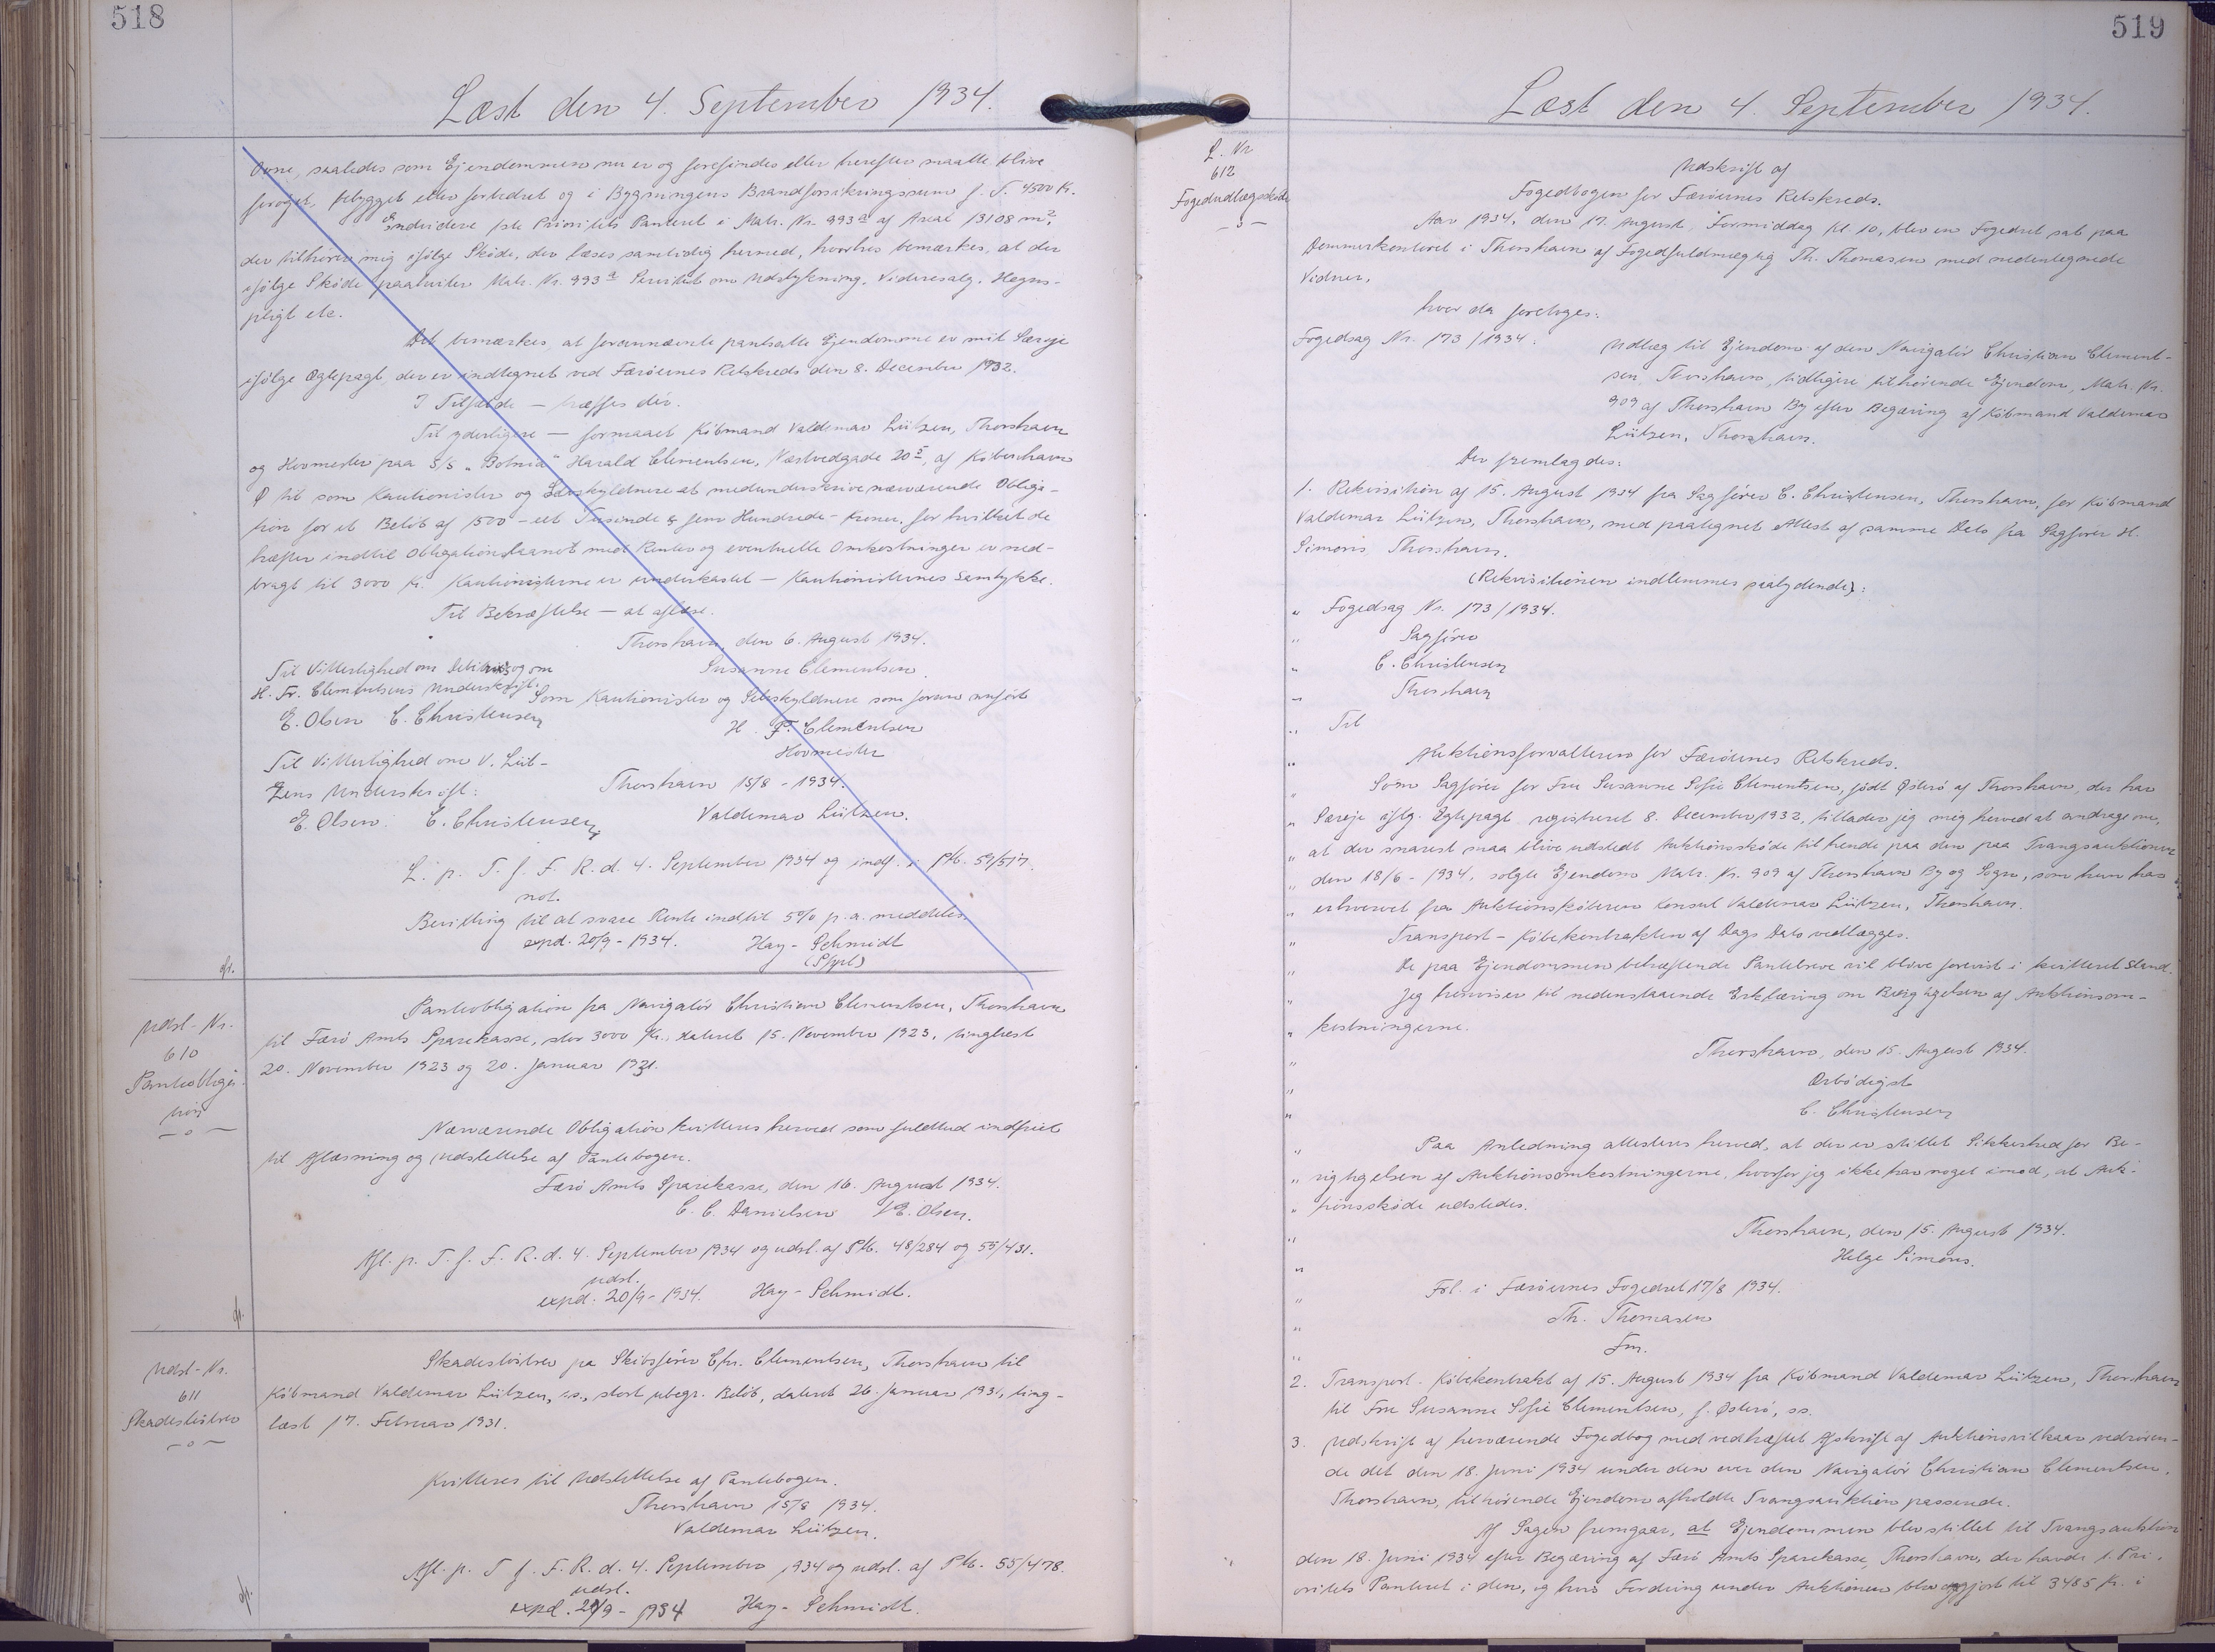 518
Læst den 4. September 1934.
Ovne, saaledes som Ejendommen nu er og forefindes eller herefter maatte blive
forøget, bebygget eller forbedret og i Bygningens Brandforsikringssum p. T. 4500 Kr.
Endvidere 1ste Prioritets Panteret i Matr. Nr. 993 a af Areal 13108 m²,
der tilhører mig ifølge Skøde, der læses samtidig hermed, hvorhos bemærkes, at der
ifølge Skøde paahviler Matr. Nr. 993 a Servitut om Udstykning, Videresalg, Hegns-
pligt etc.
Det bemærkes, at forannævnte pantsatte Ejendomme er mit Særeje
ifølge Ægtepagt, der er indtegnet ved Færøernes Retskreds den 8. December 1932.
I Tilfælde — træffes dér.
Til yderligere — formaaet Købmand Valdemar Lützen, Thorshavn
og Hovmester paa S/S "Botnia" Harald Clementsen, Næstvedgade 20, af København
Ø til som Kautionister og Selvskyldnere at medunderskrive nærværende Obliga-
tion for et Beløb af 1500 - eet Tusinde & fem Hundrede - Kroner, for hvilket de
hæfter indtil Obligationslaanet med Renter og eventuelle Omkostninger er ned-
bragt til 3000 Kr. Kautionisterne er underkastet — Kautionisternes Samtykke.
Til Bekræftelse — at aflæse.
Thorshavn, den 6. August 1934.
Til Vitterlighed om Datering og om
Susanne Clementsen.
H. Fr. Clementsens Underskrift:
Som Kautionister og Selvskyldnere som foran anført
E. Olsen C. Christensen
H. F. Clementsen
Hovmester
Til Vitterlighed om V. Lüt-
zens Underskrift:
Thorshavn 15/8 - 1934.
E. Olsen. C. Christensen
Valdemar Lützen.
L. p. T. f. F. R. d. 4. September 1934 og indf. i Ptb. 59/517.
not.
Bevilling til at svare Rente indtil 5% p.a. meddeles.
expd. 20/9 - 1934. Hay-Schmidt
Udsl-Nr.
610
Panteobliga-
tion
—o—
Panteobligation fra Navigatør Christian Clementsen, Thorshavn
til Færø Amts Sparekasse, stor 3000 Kr., dateret 15. November 1923, tinglæst
20. November 1923 og 20. Januar 1931.
Nærværende Obligation kvitteres herved som fuldtud indfriet
til Aflæsning og Udslettelse af Pantebogen.
Færø Amts Sparekasse, den 16. August 1934.
C. C. Danielsen /E. Olsen.
Afl. p. T. f. F. R. d. 4. September 1934 og udsl. af Ptb. 48/284 og 55/431.
udsl.
expd. 20/9 - 1934. Hay-Schmidt.
Udsl-Nr.
611
Skadesløsbrev
—o—
Skadesløsbrev fra Skibsfører Chr. Clementsen, Thorshavn til
Købmand Valdemar Lützen, ss., stort ubegr. Beløb, dateret 26. Januar 1931, ting-
læst 17. Februar 1931.
Kvitteres til Udslettelse af Pantebogen.
Thorshavn 15/8 1934.
Valdemar Lützen.
Afl. p. T. f. F. R. d. 4. September 1934 og udsl. af Ptb. 55/478.
udsl.
expd. 20/9 - 1934 Hay-Schmidt.
519
Læst den 4. September 1934.
L. Nr
612
Fogedudlægsskøde
—o—
Udskrift af
Fogedbogen for Færøernes Retskreds.
Aar 1934, den 17. August, Formiddag Kl. 10, blev en Fogedret sat paa
Dommerkontoret i Thorshavn af Fogedfuldmægtig Th. Thomasen med nedentegnede
Vidner,
hvor da foretoges:
Fogedsag Nr. 173/1934. Udlæg til Ejendom af den Navigatør Christian Clement-
sen, Thorshavn, tidligere tilhørende Ejendom, Matr. Nr.
909 af Thorshavn By efter Begæring af Købmand Valdemar
Lützen, Thorshavn.
Der fremlagdes:
1. Rekvisition af 15. August 1934 fra Sagfører C. Christensen, Thorshavn, for Købmand
Valdemar Lützen, Thorshavn, med paategnet Attest af samme Dato fra Sagfører H.
Simons Thorshavn.
(Rekvisitionen indlemmes saalydende):
" Fogedsag Nr. 173/1934.
" Sagfører
" C. Christensen
" Thorshavn
" Til
" Auktionsforvalteren for Færøernes Retskreds.
" Som Sagfører for Fru Susanne Sofie Clementsen, født Østerø af Thorshavn, der har
" Særeje iflg. Ægtepagt registreret 8. December 1932, tillader jeg mig herved at andrage om,
" at der snarest maa blive udstedt Auktionsskøde til hende paa den paa Tvangsauktionen
" den 18/6 - 1934, solgte Ejendom Matr. Nr. 909 af Thorshavn By og Sogn, som hun har
" erhvervet fra Auktionskøberen Konsul Valdemar Lützen, Thorshavn.
" Transport-Købekontrakten af Dags Dato vedlægges.
" De paa Ejendommen behæftende Pantebreve vil blive forevist i kvitteret Stand.
" Jeg henviser til nedenstaaende Erklæring om Berigtigelsen af Auktionsom-
" kostningerne.
" Thorshavn, den 15. August 1934.
" Ærbødigst
" C. Christensen
" Paa Anledning attesteres herved, at der er stillet Sikkerhed for Be-
" rigtigelsen af Auktionsomkostningerne, hvorfor jeg ikke har noget imod, at Auk-
" tionsskøde udstedes.
" Thorshavn, den 15. August 1934.
" Helge Simons.
" Frl. i Færøernes Fogedret 17/8 1934.
" Th. Thomasen
" Fm.
2. Transport-Købekontrakt af 15. August 1934 fra Købmand Valdemar Lützen, Thorshavn
til Fru Susanne Sofie Clementsen, f. Østerø, ss.
3. Udskrift af herværende Fogedbog med vedhæftet Afskrift af Auktionsvilkaar vedrøren-
de det den 18. Juni 1934 under den over den Navigatør Christian Clementsen,
Thorshavn, tilhørende Ejendom afholdte Tvangsauktion passerede.
Af Sagen fremgaar, at Ejendommen blev stillet til Tvangsauktion
den 18. Juni 1934 efter Begæring af Færø Amts Sparekasse, Thorshavn, der havde 1. Pri-
oritets Panteret i den, og hvis Fordring under Auktionen blev opgjort til 3485 Kr. i